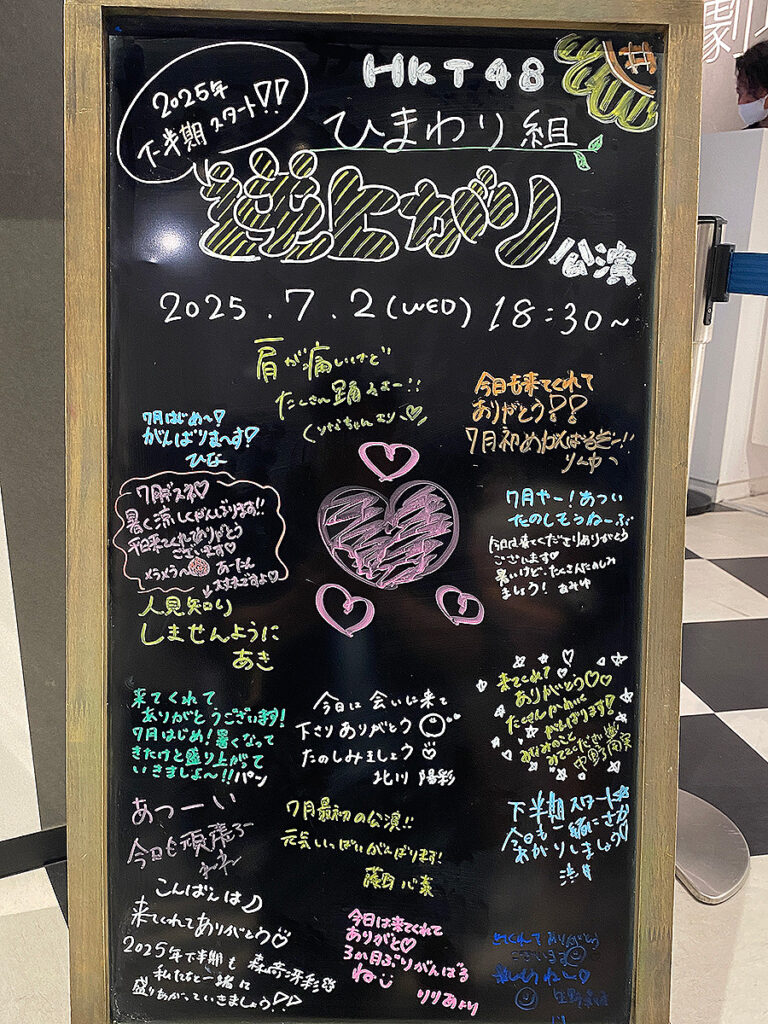 2025年
下半期スタート!!
HKT48
ひまわり組
逆上がり公演
2025.7.2(WED) 18:30~
肩が痛いけど
たくさん踊るぞー!!
7月はじめ〜!
がんばりま〜す!
ひな
今日も来てくれて
ありがとう!!
7月初めがんばるぞー!!
7月ですね♡
ありがとう
ございます♡
7月やー!あつい
今日は来てくださりありがとう
ございます♡
暑いけど、たくさんたのしみ
ましょう!
人見知り
しませんように
あき
来てくれて
ありがとうございます!
7月はじめ!暑くなって
きたけど盛り上がって
いきましょ〜!!パン
今日は会いに来て
下さりありがとう
たのしみましょう
北川 陽彩
来てくれて
ありがとう♡♡
たくさんかわいく
がんばります!
みなみのこと
みてください
あつーい
今日も頑張ろー
7月最初の公演!!
元気いっぱいがんばります!
下半期スタート
今日も一緒にさか
あがりしましょう♡
こんばんは♪
来てくれてありがとう
2025年下半期も
私たちと一緒に
盛りあがっていきましょう!!
森﨑冴彩
今日は来てくれて
ありがと♡
3か月ぶりがんばる
ね
りりあより
きてくれてありがとう
ございます
楽しもうねい♡